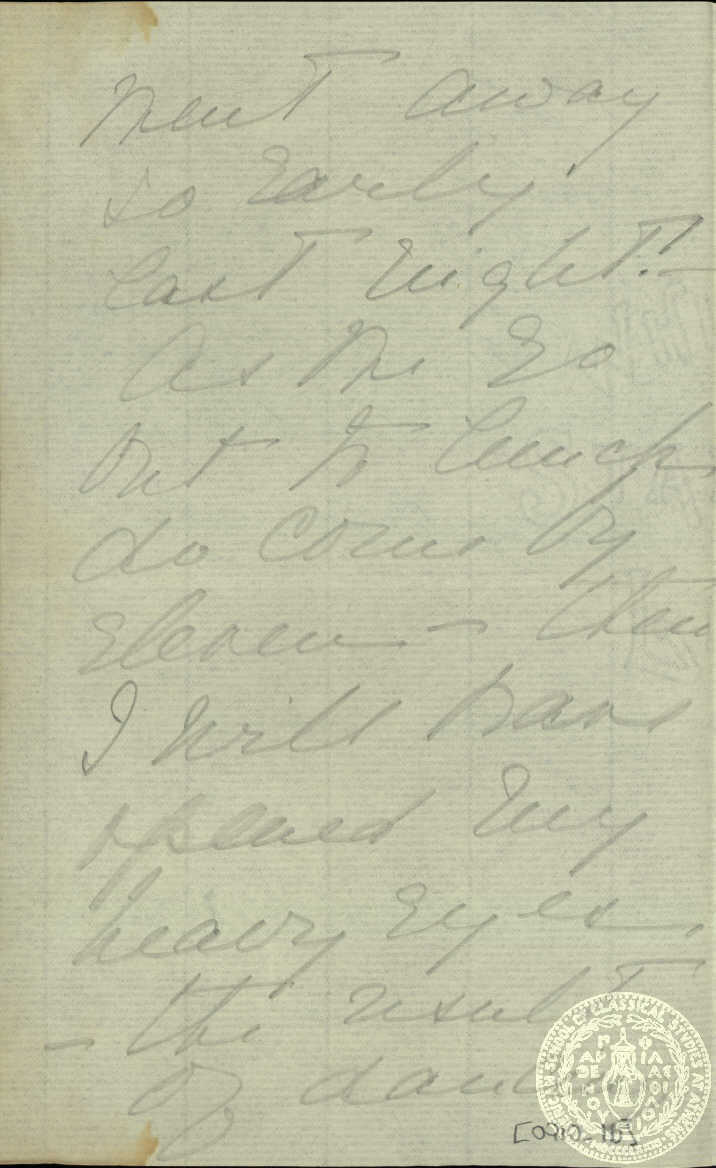 went away
so early
last night! -
As we go
out to lunch,
do come by
eleven - then
I will have
opened my
heavy eyes,
- the result
of
[0910_1b]
AMERICAN SCHOOL OF CLASSICAL STUDIES AT ATHENS